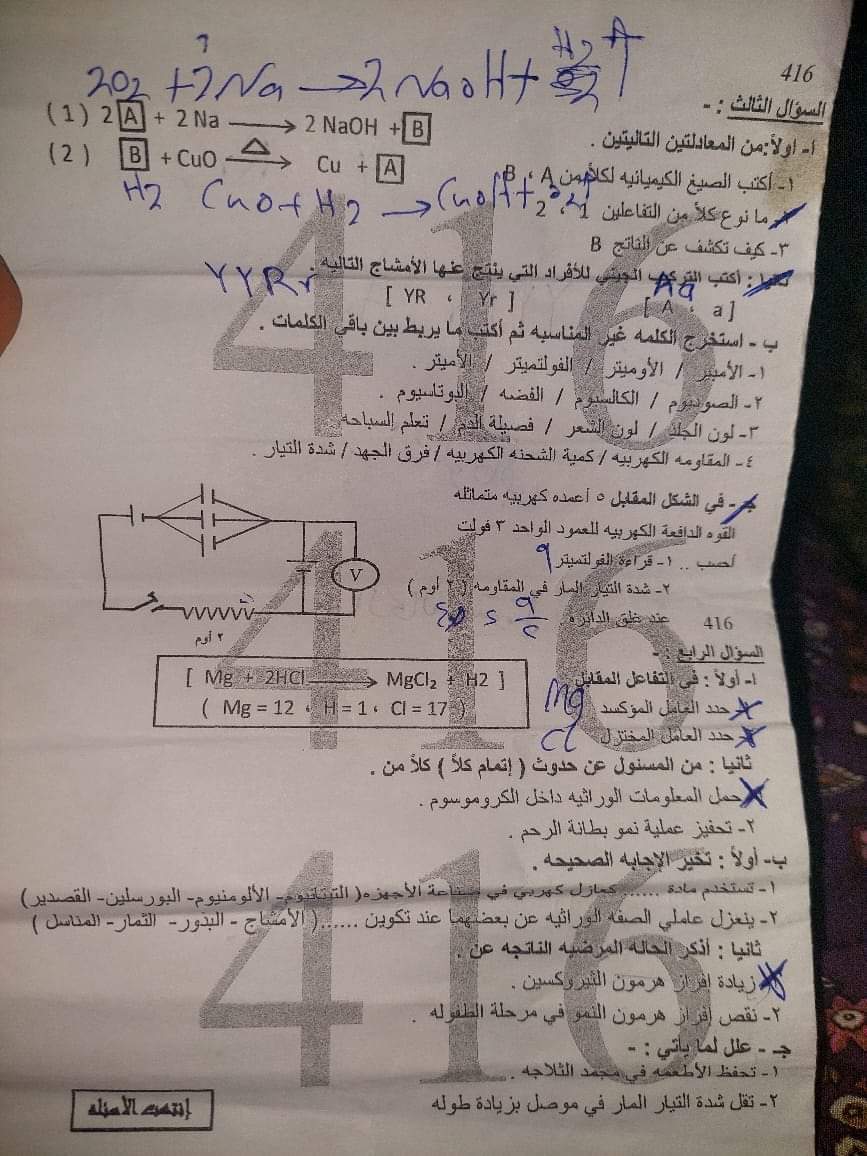 2O2 + 2Na → 2NaOH + H2↑
416
السؤال الثالث : -
أ- أولاً:من المعادلتين التاليتين .
(1) 2 A + 2 Na → 2 NaOH + B
(2) B + CuO △→ Cu + A
١- أكتب الصيغ الكيميائيه لكلاً من A ، B
H2 CuO + H2 →
٢- ما نوع كلاً من التفاعلين 1 ، 2
٣- كيف تكشف عن الناتج B
ثانياً : أكتب التركيب الجيني للأفراد التي ينتج عنها الأمشاج التاليه .
YYRr Aa
[ A ، a ] [ YR ، Yr ]
ب - استخرج الكلمه غير المناسبه ثم أكتب ما يربط بين باقي الكلمات .
١- الأمبير / الأوميتر / الفولتميتر / الأميتر .
٢- الصوديوم / الكالسيوم / الفضه / البوتاسيوم .
٣- لون الجلد / لون الشعر / فصيلة الدم / تعلم السباحه
٤- المقاومه الكهربيه / كمية الشحنه الكهربيه / فرق الجهد / شدة التيار .
جـ - في الشكل المقابل ٥ أعمده كهربيه متماثله
القوه الدافعة الكهربيه للعمود الواحد ٣ فولت
أحسب .. ١- قراءة الفولتميتر 9
V
٢- شدة التيار المار في المقاومه ( ٢ أوم )
عند غلق الدائره
416
٢ أوم
السؤال الرابع : -
أ- أولاً : في التفاعل المقابل
[ Mg + 2HCl → MgCl₂ + H2 ]
( Mg = 12 ، H = 1 ، Cl = 17 )
١- حدد العامل المؤكسد Mg
٢- حدد العامل المختزل Cl
ثانيا : من المسئول عن حدوث ( إتمام كلاً ) كلاً من .
١- حمل المعلومات الوراثيه داخل الكروموسوم .
٢- تحفيز عملية نمو بطانة الرحم .
ب- أولاً : تخير الإجابه الصحيحه .
١- تستخدم مادة ...... كعازل كهربي في صناعة الأجهزه( التيتانيوم- الألومنيوم- البورسلين- القصدير)
٢- ينعزل عاملي الصفه الوراثيه عن بعضهما عند تكوين ......( الأمشاج - البذور- الثمار- المناسل )
ثانيا : أذكر الحاله المرضيه الناتجه عن .
١- زيادة إفراز هرمون الثيروكسين .
٢- نقص إفراز هرمون النمو في مرحلة الطفوله .
جـ - علل لما يأتي : -
١- تحفظ الأطعمه في مجمد الثلاجه .
٢- تقل شدة التيار المار في موصل بزيادة طوله
إنتهت الأسئله
416
416
416